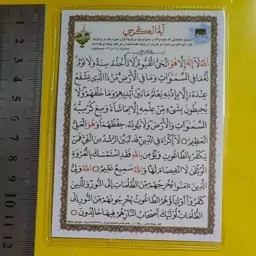 آیة الکرسی
اَللهُ لَا إِلٰهَ إِلَّا هُوَ الْحَيُّ الْقَيُّومُ لَا تَأْخُذُهُ سِنَةٌ وَلَا نَوْمٌ
لَهُ مَا فِي السَّمٰوَاتِ وَمَا فِي الْأَرْضِ مَنْ ذَا الَّذِي يَشْفَعُ
عِنْدَهُ إِلَّا بِإِذْنِهِ يَعْلَمُ مَا بَيْنَ أَيْدِيهِمْ وَمَا خَلْفَهُمْ وَلَا
يُحِيطُونَ بِشَيْءٍ مِنْ عِلْمِهِ إِلَّا بِمَا شَاءَ وَسِعَ كُرْسِيُّهُ
السَّمٰوَاتِ وَالْأَرْضَ وَلَا يَئُودُهُ حِفْظُهُمَا وَهُوَ الْعَلِيُّ
الْعَظِيمُ لَا إِكْرَاهَ فِي الدِّينِ قَدْ تَبَيَّنَ الرُّشْدُ مِنَ الْغَيِّ فَمَنْ
يَكْفُرْ بِالطَّاغُوتِ وَيُؤْمِنْ بِاللهِ فَقَدِ اسْتَمْسَكَ بِالْعُرْوَةِ
الْوُثْقَىٰ لَا انْفِصَامَ لَهَا وَاللهُ سَمِيعٌ عَلِيمٌ اللهُ وَلِيُّ
الَّذِينَ آمَنُوا يُخْرِجُهُمْ مِنَ الظُّلُمَاتِ إِلَى النُّورِ وَالَّذِينَ
كَفَرُوا أَوْلِيَاؤُهُمُ الطَّاغُوتُ يُخْرِجُونَهُمْ مِنَ النُّورِ إِلَى
الظُّلُمَاتِ أُولٰئِكَ أَصْحَابُ النَّارِ هُمْ فِيهَا خَالِدُونَ